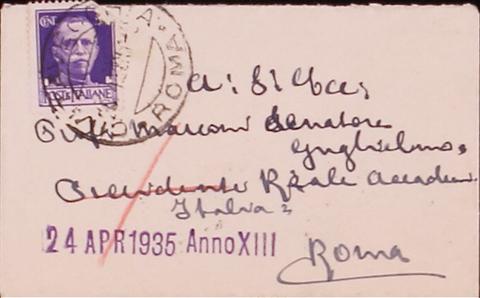 CENT
POSTE ITALIANE
ROMA
A. S. E.
Marconi Senatore
Guglielmo,
Presidente Reale Accademia
Italia
24 APR 1935 Anno XIII
Roma